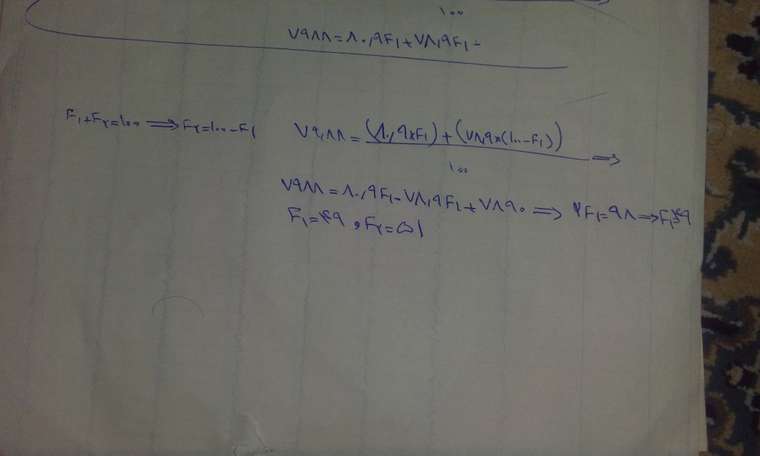 ۱۰۰
۷۹۸۸=۸۰٫۹F۱+۷۸٫۹F۱-
F۱+F۲=۱۰۰ ⟹ F۲=۱۰۰-F۱
۷۹٫۸۸=(۸۰٫۹×F۱)+(۷۸٫۹×(۱۰۰-F۱)) ⟹
۱۰۰
۷۹۸۸=۸۰٫۹F۱-۷۸٫۹F۱+۷۸۹۰ ⟹ ۲F۱=۹۸ ⟹ F۱=۴۹
F۱=۴۹ , F۲=۵۱